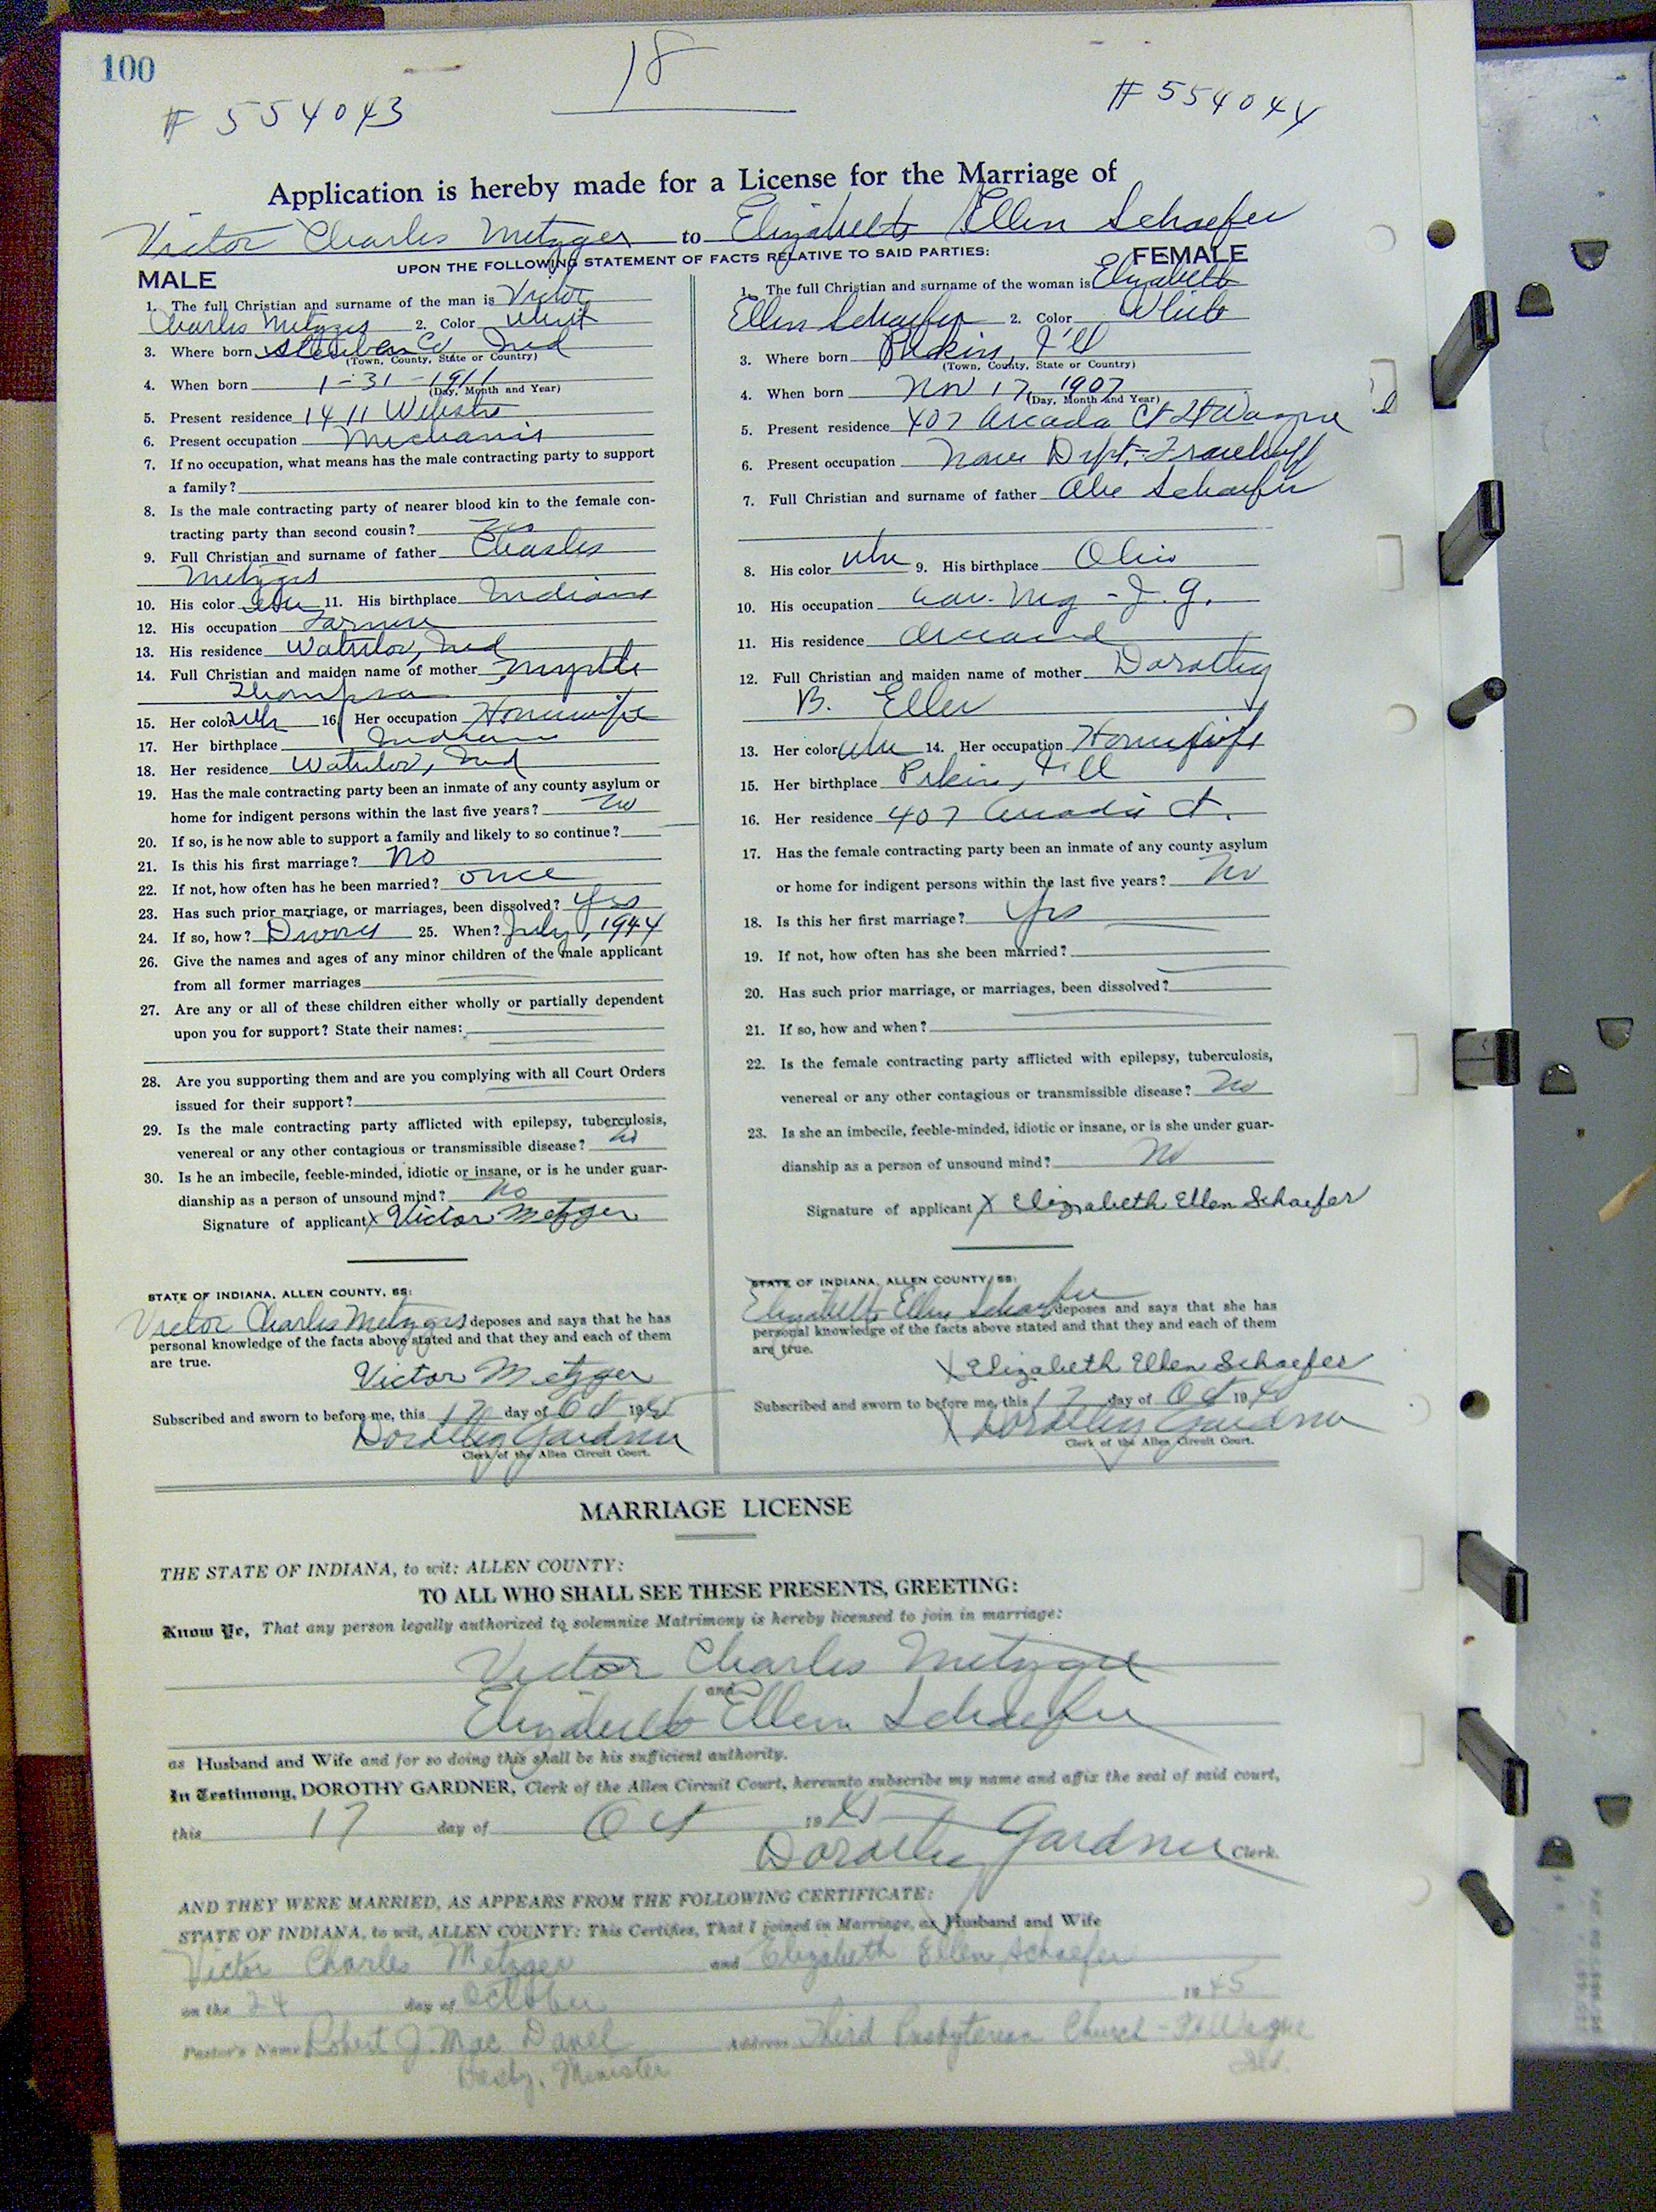 100
18
# 554043
# 554044
Application is hereby made for a License for the Marriage of
Victor Charles Metzger to Elizabeth Ellen Schaefer
UPON THE FOLLOWING STATEMENT OF FACTS RELATIVE TO SAID PARTIES:
MALE
1. The full Christian and surname of the man is Victor
Charles Metzger 2. Color White
3. Where born Steuben Co Ind
(Town, County, State or Country)
4. When born 1-31-1911
(Day, Month and Year)
5. Present residence 1411
6. Present occupation Mechanic
7. If no occupation, what means has the male contracting party to support
a family?
8. Is the male contracting party of nearer blood kin to the female con-
tracting party than second cousin? No
9. Full Christian and surname of father Charles
Metzger
10. His color 11. His birthplace Indiana
12. His occupation Farmer
13. His residence Waterloo, Ind
14. Full Christian and maiden name of mother Myrtle
Thompson
15. Her color Wh 16. Her occupation Housewife
17. Her birthplace Indiana
18. Her residence Waterloo, Ind
19. Has the male contracting party been an inmate of any county asylum or
home for indigent persons within the last five years? No
20. If so, is he now able to support a family and likely to so continue?
21. Is this his first marriage? No
22. If not, how often has he been married? once
23. Has such prior marriage, or marriages, been dissolved? Yes
24. If so, how? Divorce 25. When? July, 1944
26. Give the names and ages of any minor children of the male applicant
from all former marriages
27. Are any or all of these children either wholly or partially dependent
upon you for support? State their names:
28. Are you supporting them and are you complying with all Court Orders
issued for their support?
29. Is the male contracting party afflicted with epilepsy, tuberculosis,
venereal or any other contagious or transmissible disease? No
30. Is he an imbecile, feeble-minded, idiotic or insane, or is he under guar-
dianship as a person of unsound mind? No
Signature of applicant X Victor Metzger
STATE OF INDIANA, ALLEN COUNTY, SS:
Victor Charles Metzger deposes and says that he has
personal knowledge of the facts above stated and that they and each of them
are true.
Victor Metzger
Subscribed and sworn to before me, this 17 day of Oct 1945
Dorothy Gardner
Clerk of the Allen Circuit Court.
FEMALE
1. The full Christian and surname of the woman is Elizabeth
Ellen Schaefer 2. Color White
3. Where born Pekin, Ill
(Town, County, State or Country)
4. When born Nov 17, 1907
(Day, Month and Year)
5. Present residence 407 Arcadia Ct Ft Wayne
6. Present occupation Dept.
7. Full Christian and surname of father Abe Schaefer
8. His color Whi 9. His birthplace Ohio
10. His occupation
11. His residence
12. Full Christian and maiden name of mother Dorothy
B. Eller
13. Her color Whi 14. Her occupation Housewife
15. Her birthplace Pekin, Ill
16. Her residence 407 Arcadia Ct.
17. Has the female contracting party been an inmate of any county asylum
or home for indigent persons within the last five years? No
18. Is this her first marriage? Yes
19. If not, how often has she been married?
20. Has such prior marriage, or marriages, been dissolved?
21. If so, how and when?
22. Is the female contracting party afflicted with epilepsy, tuberculosis,
venereal or any other contagious or transmissible disease? No
23. Is she an imbecile, feeble-minded, idiotic or insane, or is she under guar-
dianship as a person of unsound mind? No
Signature of applicant X Elizabeth Ellen Schaefer
STATE OF INDIANA, ALLEN COUNTY, SS:
Elizabeth Ellen Schaefer deposes and says that she has
personal knowledge of the facts above stated and that they and each of them
are true.
X Elizabeth Ellen Schaefer
Subscribed and sworn to before me, this 17 day of Oct 1945
X Dorothy Gardner
Clerk of the Allen Circuit Court.
MARRIAGE LICENSE
THE STATE OF INDIANA, to wit: ALLEN COUNTY:
TO ALL WHO SHALL SEE THESE PRESENTS, GREETING:
Know Ye, That any person legally authorized to solemnize Matrimony is hereby licensed to join in marriage:
Victor Charles Metzger
and
Elizabeth Ellen Schaefer
as Husband and Wife and for so doing this shall be his sufficient authority.
In Testimony, DOROTHY GARDNER, Clerk of the Allen Circuit Court, hereunto subscribe my name and affix the seal of said court,
this 17 day of Oct 1945
Dorothy Gardner Clerk.
AND THEY WERE MARRIED, AS APPEARS FROM THE FOLLOWING CERTIFICATE:
STATE OF INDIANA, to wit, ALLEN COUNTY: This Certifies, That I joined in Marriage, as Husband and Wife
Victor Charles Metzger and Elizabeth Ellen Schaefer
on the 24 day of October 1945
Pastor's Name Robert J. Mac Address Third Presbyterian Church - Ft Wayne
Ind.
Presby. Minister